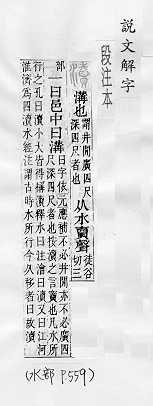 說文解字
段注本
瀆
溝也 謂井閒廣四尺
深四尺者也 从水賣聲 徒谷
切三
部 一曰邑中曰溝 曰字依元應補不必井閒亦不必廣四
尺深四尺者也按瀆之言竇也凡水所
行之孔曰瀆小大皆得偁瀆釋水曰注澮曰瀆又曰江河
淮濟為四瀆水經注謂古時水所行今久移者曰故瀆
(水部 P.559)